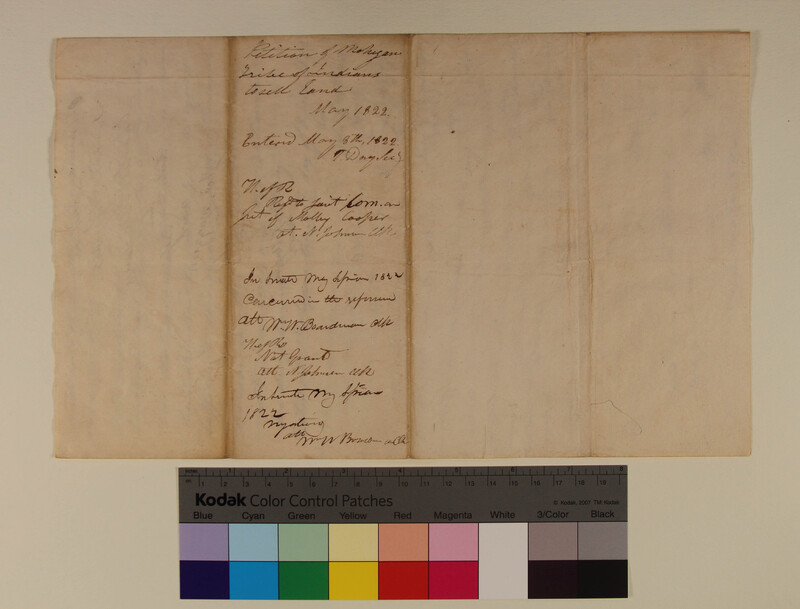 Petition of Mohegan
Tribe of Indians
to sell Land
May 1822
Enterd May 8th, 1822
T Day, Sec'y
H. of R
Refd to Joint Com. on
Pet of Molly Cooper
att. N. Johnson Clk
In Senate May Session 1822
Concurred in the reference
att Wm. W. Boardman Clk
H. of R.
Not Grant
att N Johnson Clk
In Senate May Session
1822
Negatived
att Wm W Boardman Clk
inches 1 2 3 4 5 6 7 8
cm 1 2 3 4 5 6 7 8 9 10 11 12 13 14 15 16 17 18 19
Kodak Color Control Patches
© Kodak, 2007 TM: Kodak
Blue Cyan Green Yellow Red Magenta White 3/Color Black